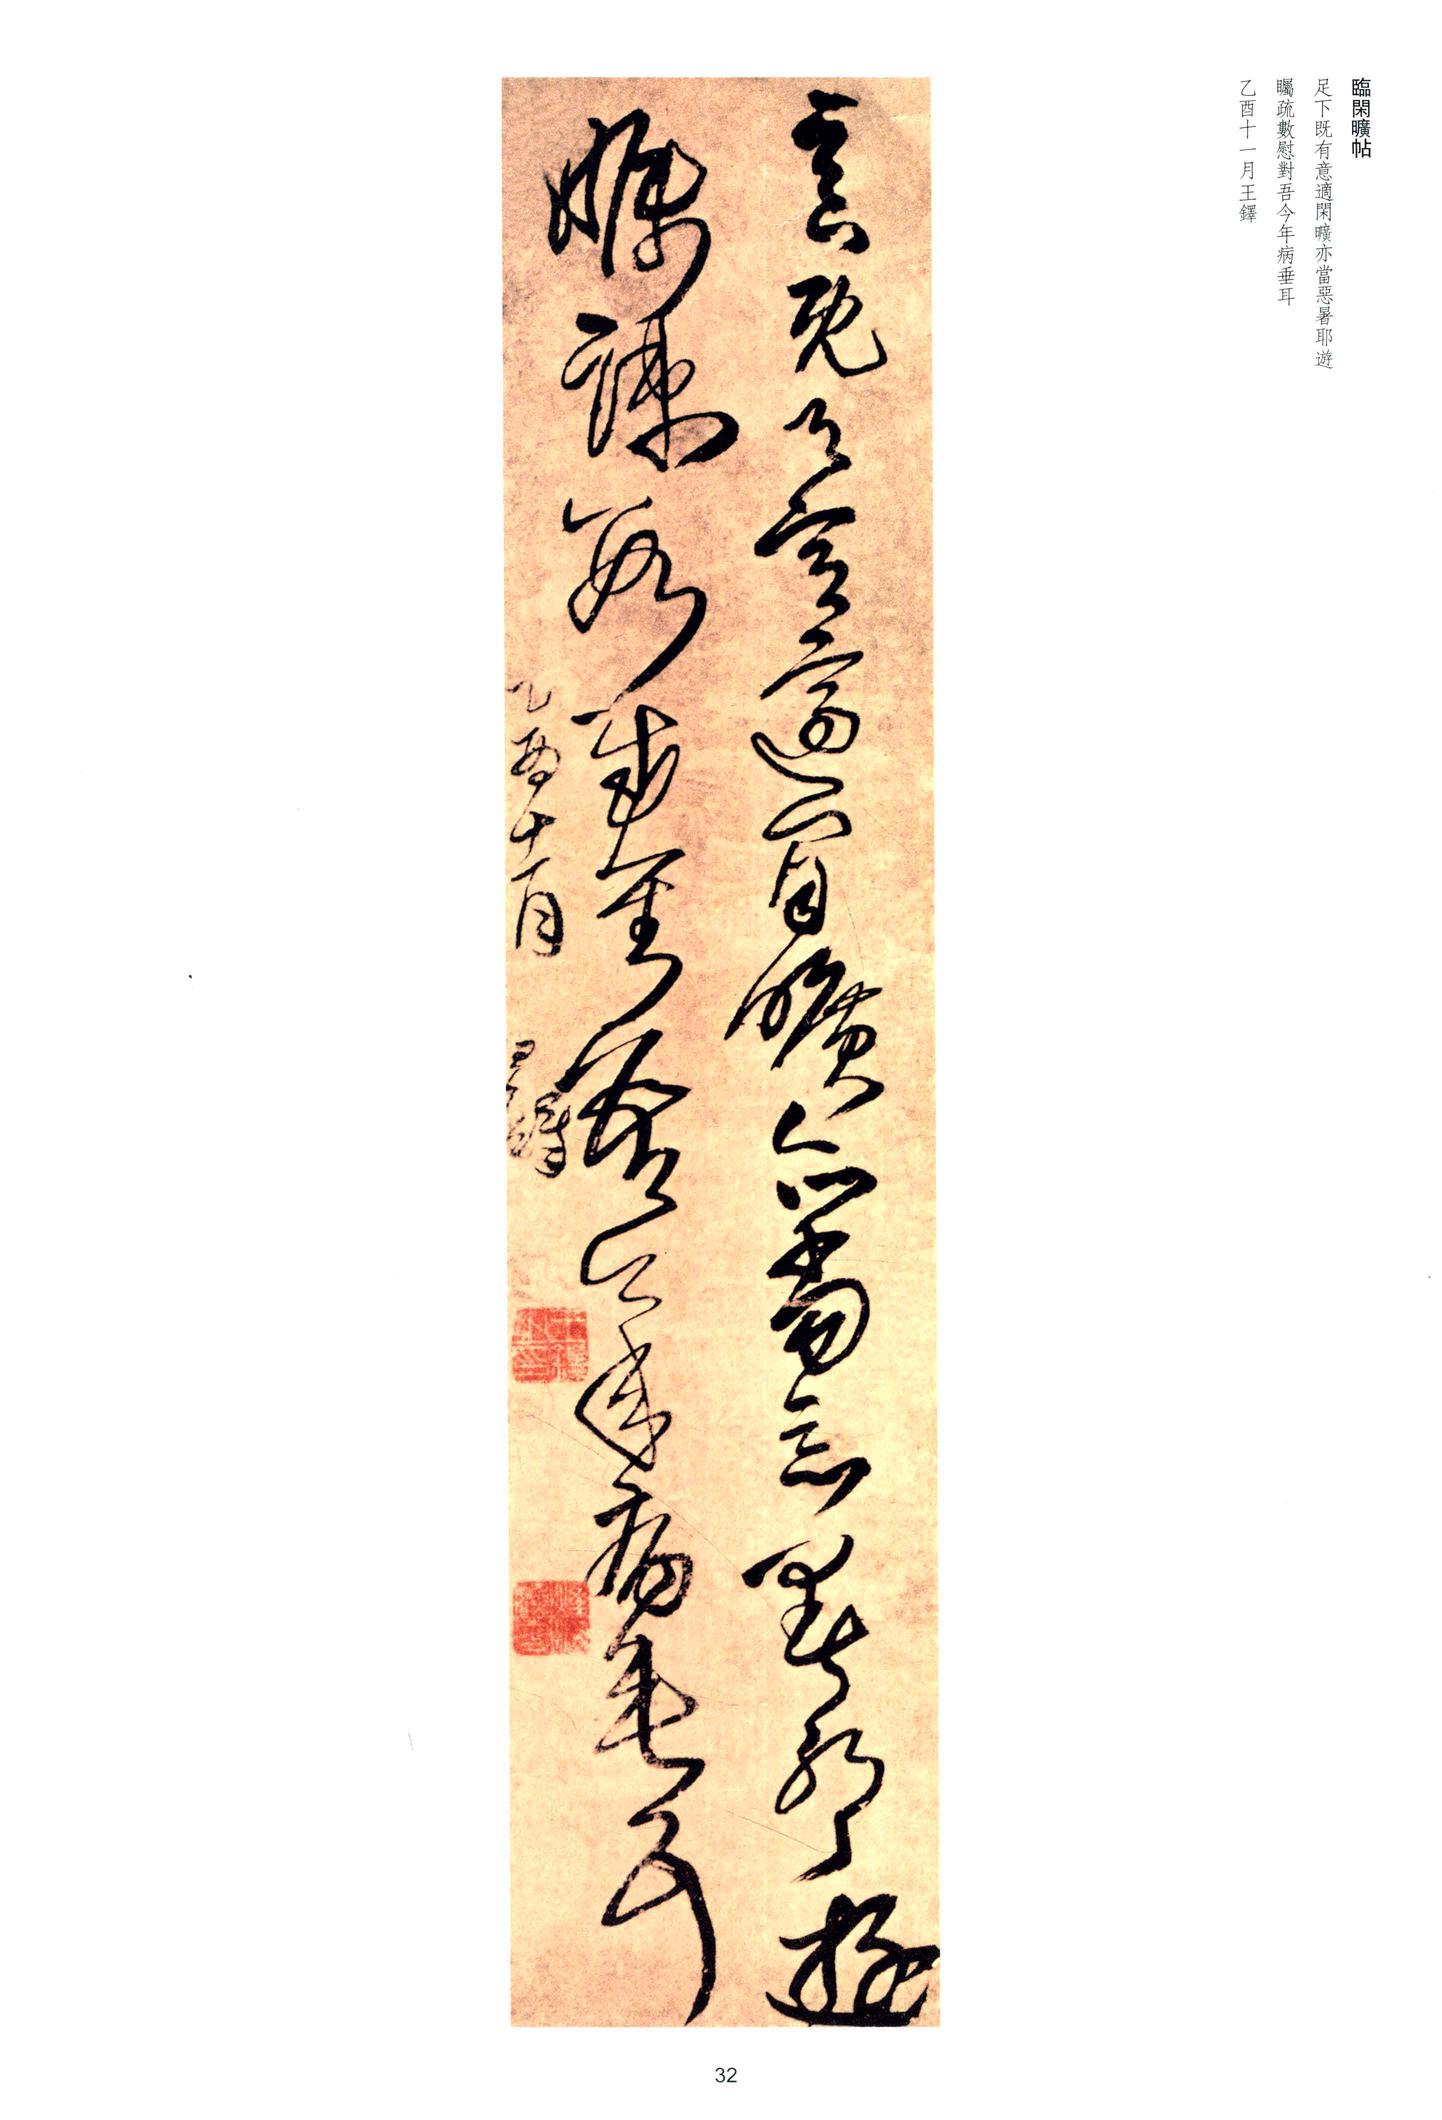 臨閑曠帖
足下既有意適閑曠亦當惡暑耶遊
矚疏數慰對吾今年病垂耳
乙酉十一月王鐸
足下既有意適閑曠亦當惡暑耶遊
矚疏數慰對吾今年病垂耳
乙酉十一月王鐸
32